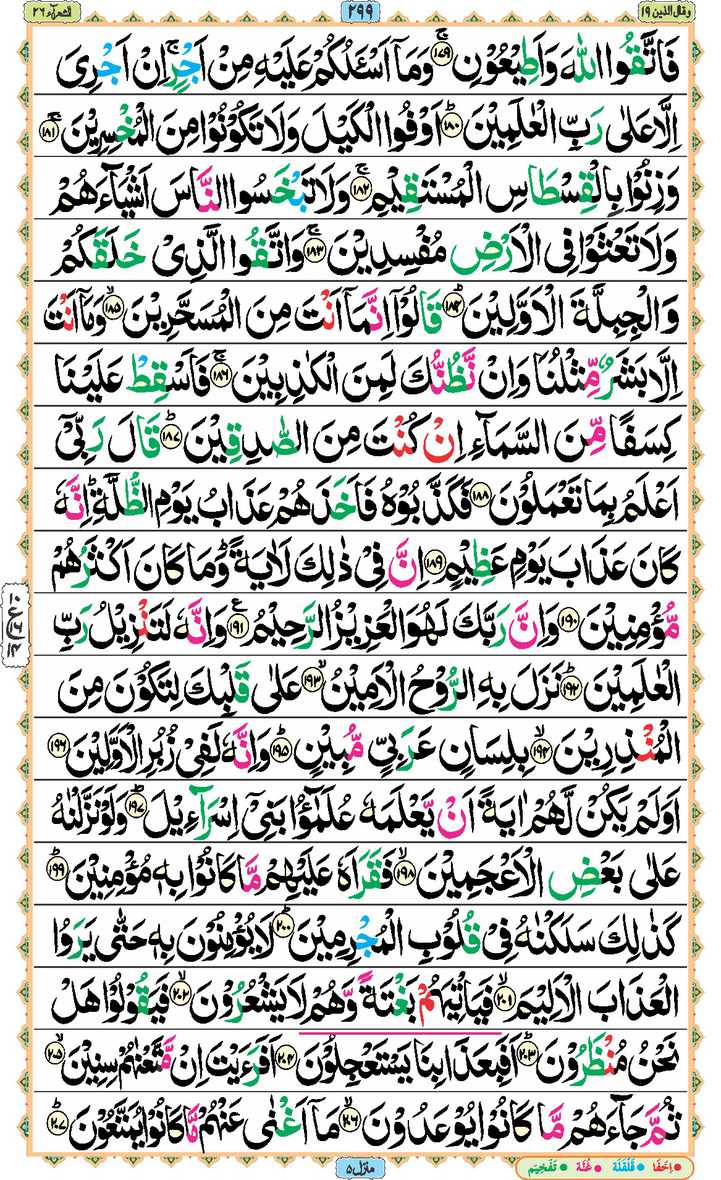 وقال الذين ١٩
٢٩٩
الشعرآء ٢٦
فَاتَّقُوا اللّٰهَ وَاَطِيْعُوْنِ ۚ‏﴿۱۷۹﴾ وَمَاۤ اَسْـَٔلُكُمْ عَلَيْهِ مِنْ اَجْرٍ ۚ اِنْ اَجْرِىَ
اِلَّا عَلٰى رَبِّ الْعٰلَمِيْنَ ؕ‏﴿۱۸۰﴾ اَوْفُوا الْكَيْلَ وَلَا تَكُوْنُوْا مِنَ الْمُخْسِرِيْنَ ۚ‏﴿۱۸۱﴾
وَزِنُوْا بِالْقِسْطَاسِ الْمُسْتَقِيْمِ ۚ‏﴿۱۸۲﴾ وَلَا تَبْخَسُوا النَّاسَ اَشْيَآءَهُمْ
وَلَا تَعْثَوْا فِى الْاَرْضِ مُفْسِدِيْنَ ۚ‏﴿۱۸۳﴾ وَاتَّقُوا الَّذِىْ خَلَقَكُمْ
وَالْجِبِلَّةَ الْاَوَّلِيْنَ ؕ‏﴿۱۸۴﴾ قَالُوْۤا اِنَّمَاۤ اَنْتَ مِنَ الْمُسَحَّرِيْنَ ۙ‏﴿۱۸۵﴾ وَمَاۤ اَنْتَ
اِلَّا بَشَرٌ مِّثْلُنَا وَاِنْ نَّظُنُّكَ لَمِنَ الْكٰذِبِيْنَ ۚ‏﴿۱۸۶﴾ فَاَسْقِطْ عَلَيْنَا
كِسَفًا مِّنَ السَّمَآءِ اِنْ كُنْتَ مِنَ الصّٰدِقِيْنَ ؕ‏﴿۱۸۷﴾ قَالَ رَبِّىْۤ
اَعْلَمُ بِمَا تَعْمَلُوْنَ‏﴿۱۸۸﴾ فَكَذَّبُوْهُ فَاَخَذَهُمْ عَذَابُ يَوْمِ الظُّلَّةِ ؕ اِنَّهٗ
كَانَ عَذَابَ يَوْمٍ عَظِيْمٍ‏﴿۱۸۹﴾ اِنَّ فِىْ ذٰلِكَ لَاٰيَةً ؕ وَّمَا كَانَ اَكْثَرُهُمْ
مُّؤْمِنِيْنَ‏﴿۱۹۰﴾ وَاِنَّ رَبَّكَ لَهُوَ الْعَزِيْزُ الرَّحِيْمُ ‏﴿۱۹۱﴾ وَاِنَّهٗ لَتَنْزِيْلُ رَبِّ
الْعٰلَمِيْنَ ؕ‏﴿۱۹۲﴾ نَزَلَ بِهِ الرُّوْحُ الْاَمِيْنُ ۙ‏﴿۱۹۳﴾ عَلٰى قَلْبِكَ لِتَكُوْنَ مِنَ
الْمُنْذِرِيْنَ ۙ‏﴿۱۹۴﴾ بِلِسَانٍ عَرَبِىٍّ مُّبِيْنٍ ؕ‏﴿۱۹۵﴾ وَاِنَّهٗ لَفِىْ زُبُرِ الْاَوَّلِيْنَ‏﴿۱۹۶﴾
اَوَلَمْ يَكُنْ لَّهُمْ اٰيَةً اَنْ يَّعْلَمَهٗ عُلَمٰٓؤُا بَنِىْۤ اِسْرَآءِيْلَ ؕ‏﴿۱۹۷﴾ وَلَوْ نَزَّلْنٰهُ
عَلٰى بَعْضِ الْاَعْجَمِيْنَ ۙ‏﴿۱۹۸﴾ فَقَرَاَهٗ عَلَيْهِمْ مَّا كَانُوْا بِهٖ مُؤْمِنِيْنَ ؕ‏﴿۱۹۹﴾
كَذٰلِكَ سَلَكْنٰهُ فِىْ قُلُوْبِ الْمُجْرِمِيْنَ ؕ‏﴿۲۰۰﴾ لَا يُؤْمِنُوْنَ بِهٖ حَتّٰى يَرَوُا
الْعَذَابَ الْاَلِيْمَ ۙ‏﴿۲۰۱﴾ فَيَاْتِيَهُمْ بَغْتَةً وَّهُمْ لَا يَشْعُرُوْنَ ۙ‏﴿۲۰۲﴾ فَيَقُوْلُوْا هَلْ
نَحْنُ مُنْظَرُوْنَ ؕ‏﴿۲۰۳﴾ اَفَبِعَذَابِنَا يَسْتَعْجِلُوْنَ‏﴿۲۰۴﴾ اَفَرَءَيْتَ اِنْ مَّتَّعْنٰهُمْ سِنِيْنَ ۙ‏﴿۲۰۵﴾
ثُمَّ جَآءَهُمْ مَّا كَانُوْا يُوْعَدُوْنَ ۙ‏﴿۲۰۶﴾ مَاۤ اَغْنٰى عَنْهُمْ مَّا كَانُوْا يُمَتَّعُوْنَ ؕ‏﴿۲۰۷﴾
منزل ۵
اِخفَا قَلْقَلَه غُنَّه تَفْخِيْم